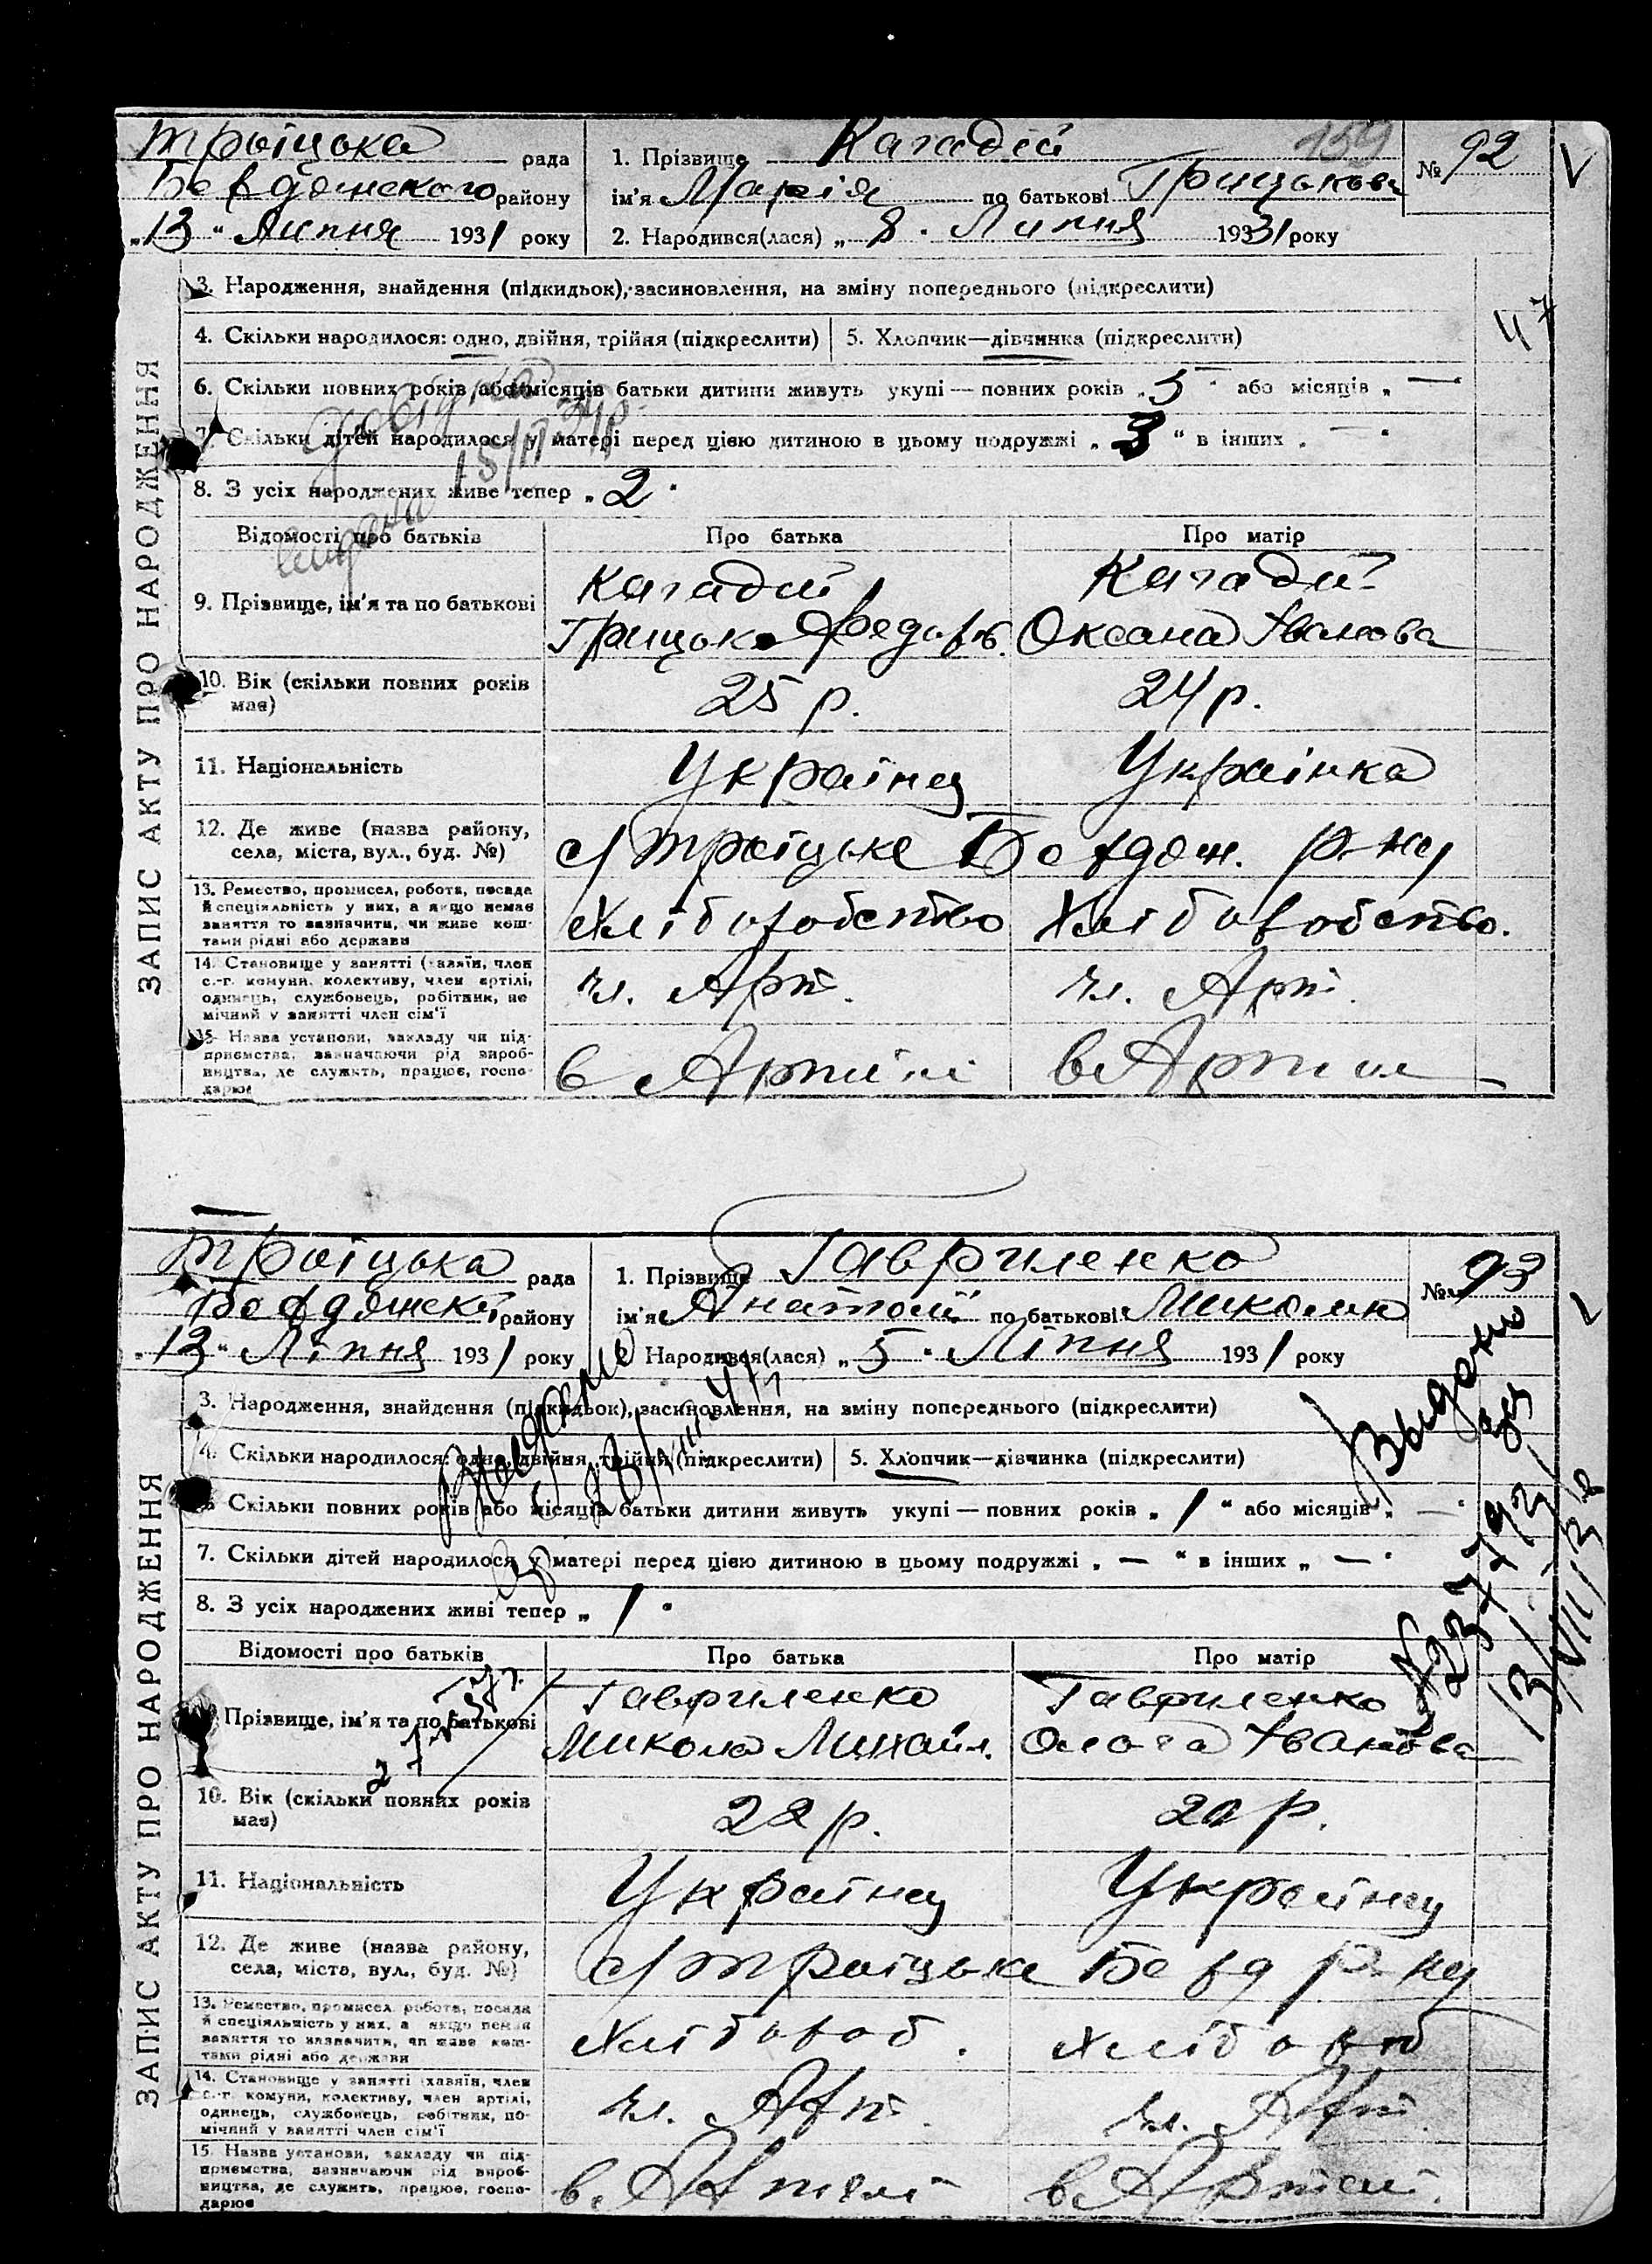 Троіцька рада
Бердянського району
„13“ Липня 1931 року
1. Прізвище Кагадій
159
№ 92
ім'я Марія по батькові Грицькова
2. Народився(лася) „8“ Липня 1931 року
3. Народження, знайдення (підкидьок), засиновлення, на зміну попереднього (підкреслити)
4. Скільки народилося: одно, двійня, трійня (підкреслити)
5. Хлопчик—дівчинка (підкреслити)
47
6. Скільки повних років або місяців батьки дитини живуть укупі — повних років „5“ або місяців „—
7. Скільки дітей народилося у матері перед цією дитиною в цьому подружжі „3“ в інших „—“
8. З усіх народжених живе тепер „2“
ЗАПИС АКТУ ПРО НАРОДЖЕННЯ
Відомості про батьків
Про батька
Про матір
9. Прізвище, ім'я та по батькові
Кагадій
Грицько Федоров.
Кагадій
Оксана Іванова
10. Вік (скільки повних років має)
25 р.
24 р.
11. Національність
Украінец
Украінка
12. Де живе (назва району, села, міста, вул., буд. №)
с/ Троіцьке Бердян. р-ну
13. Ремество, промисел, робота, посада й спеціяльність у них, а якщо немає заняття то зазначити, чи живе коштами рідні або держави
Хліборобство
Хліборобство.
14. Становище у занятті (хазяїн, член с.-г. комуни, колективу, член артілі, одинець, службовець, робітник, помічний у занятті член сім'ї
чл. Арт.
чл. Арт.
15. Назва установи, закладу чи підприємства, зазначаючи рід виробництва, де служить, працює, господарює
в Артілі
в Артілі
Троіцька рада
Бердянськ. району
„13“ Ліпня 1931 року
1. Прізвище Гавриленко
№ 93
ім'я Анатолій по батькові Миколин
2. Народився(лася) „5“ Ліпня 1931 року
3. Народження, знайдення (підкидьок), засиновлення, на зміну попереднього (підкреслити)
4. Скільки народилося: одно, двійня, трійня (підкреслити)
5. Хлопчик—дівчинка (підкреслити)
6. Скільки повних років або місяців батьки дитини живуть укупі — повних років „1“ або місяців „—“
7. Скільки дітей народилося у матері перед цією дитиною в цьому подружжі „—“ в інших „—“
8. З усіх народжених живі тепер „1“
ЗАПИС АКТУ ПРО НАРОДЖЕННЯ
Відомості про батьків
Про батька
Про матір
Прізвище, ім'я та по батькові
Гавриленко
Микола Михайл.
Гавриленко
Ольга Іванова
10. Вік (скільки повних років має)
22 р.
20 р.
11. Національність
Украінец
Украінец
12. Де живе (назва району, села, міста, вул., буд. №)
с/ Троіцька Бердр-ну
13. Ремество, промисел, робота, посада й спеціяльність у них, а якщо немає заняття то зазначити, чи живе коштами рідні або держави
Хлібороб.
Хлібороб
14. Становище у занятті (хазяїн, член с.-г. комуни, колективу, член артілі, одинець, службовець, робітник, помічний у занятті член сім'ї
чл. Арт.
чл. Арт.
15. Назва установи, закладу чи підприємства, зазначаючи рід виробництва, де служить, працює, господарює
в. Артелі
в. Артелі.